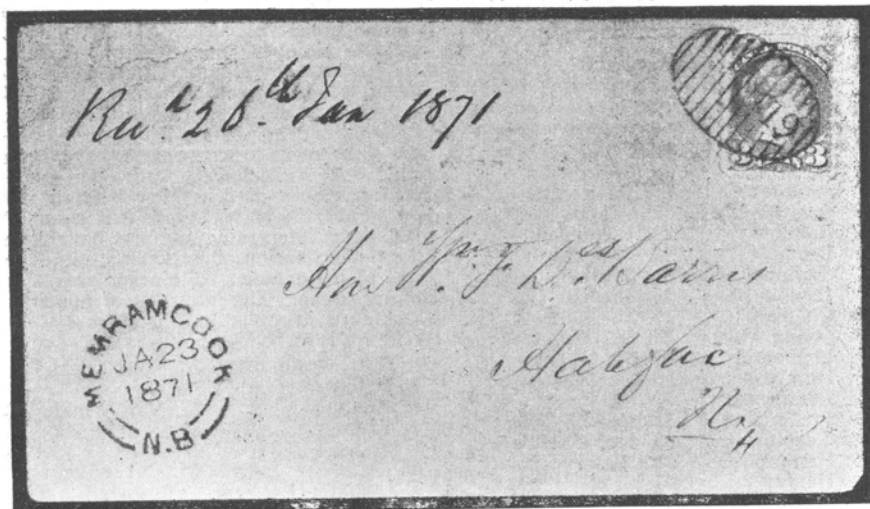 Recd. 26th Jan 1871
19
3 3
Hon Wm. F. DesBarres
Halifax
N.
MEMRAMCOOK
JA 23
1871
N.B